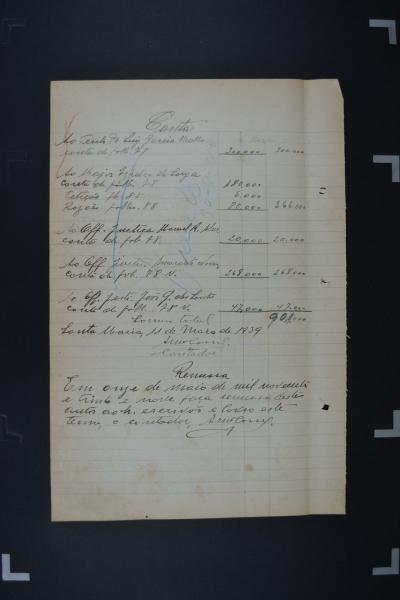 Conta
Ao Perito Dr Luiz Garcia
conta de folh. 78 200,000 200,000
Ao Major Izidro de
conta de folh. 78 180,000
Petição fl.
Razão folha. 88 80,000 266,000
Ao Off. Justiça Manoel R.
conta de folh. 78. 20,000 20,000
Ao Off. Justiça
conta de fol. 78 v. 268,000 268,000
Ao Off. Just. José J. dos Santos
conta de folh. 78 v. 47,000 47,000
Somma total 901,000
Santa Maria, 11 de Maio de 1939.
Contador
Remessa
Em onze de maio de mil novecentos
e trinta e nove faço remessa destes
autos ao sr. escrivão e lavro este
termo, o contador,